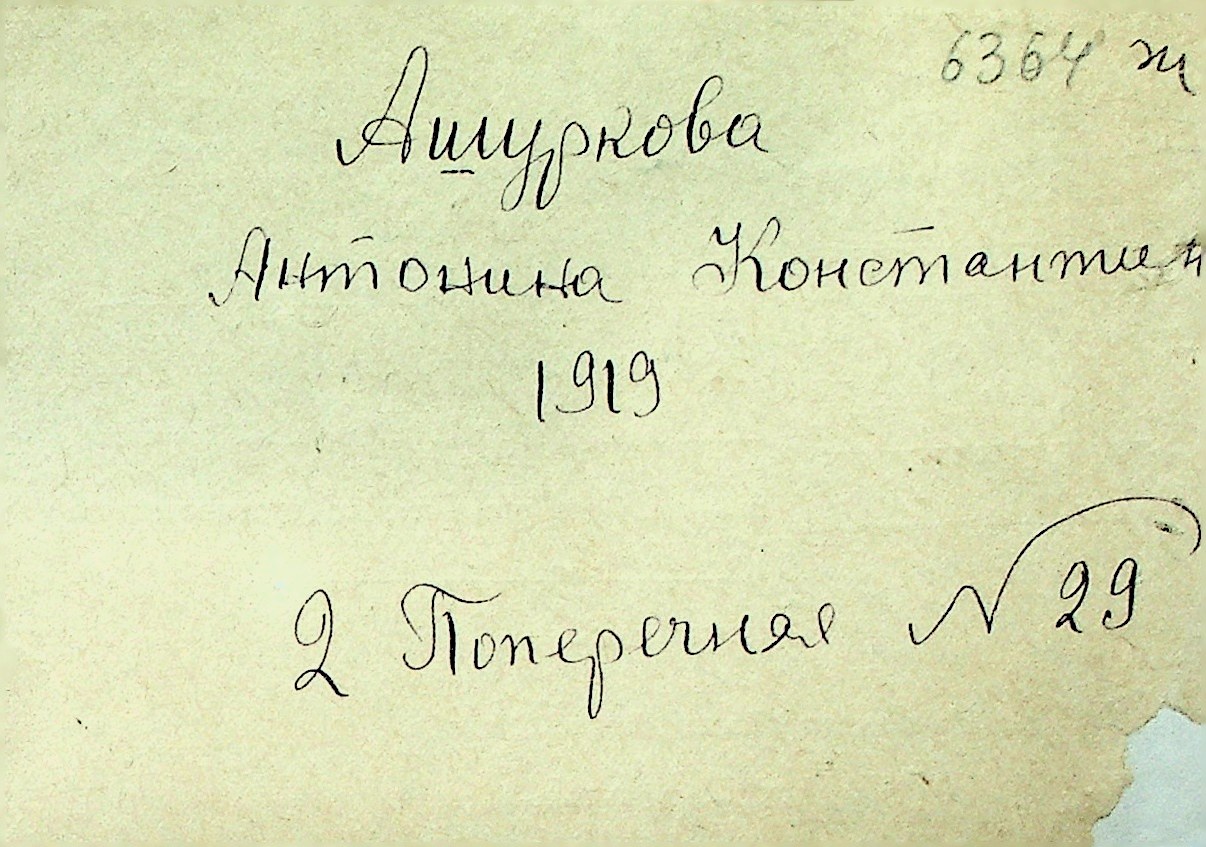 6364 ж
Ашуркова
Антонина Константин
1919
2 Поперечная N 29